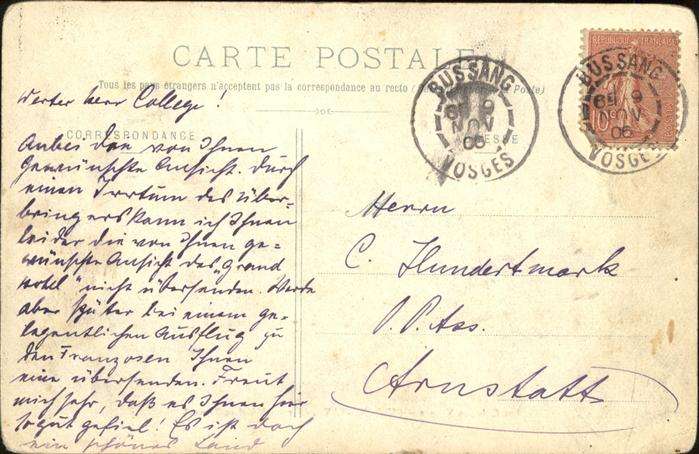 CARTE POSTALE
Tous les pays étrangers n'acceptent pas la correspondance au recto Poste)
CORRESPONDANCE
RÉPUBLIQUE FRANÇAISE
10c
BUSSANG
6 NOV
06
VOSGES
BUSSANG
6 NOV
06
VOSGES
Werter Herr College!
Anbei von Ihnen
gewünschte Ansicht. Durch
einen Irrtum des Über-
bringers kann ich Ihnen
leider die von Ihnen ge=
wünschte Ansicht des „Grand
Hotel" nicht übersenden. Werde
aber später bei einem ge-
legentlichen Ausflug zu
den Franzosen Ihnen
eine übersenden. Freut
mich sehr, daß es Ihnen hier
so gut gefiel! Es ist doch
ein schönes Land
Herrn
C. Hundertmark
P. P. Ass.
Arnstatt